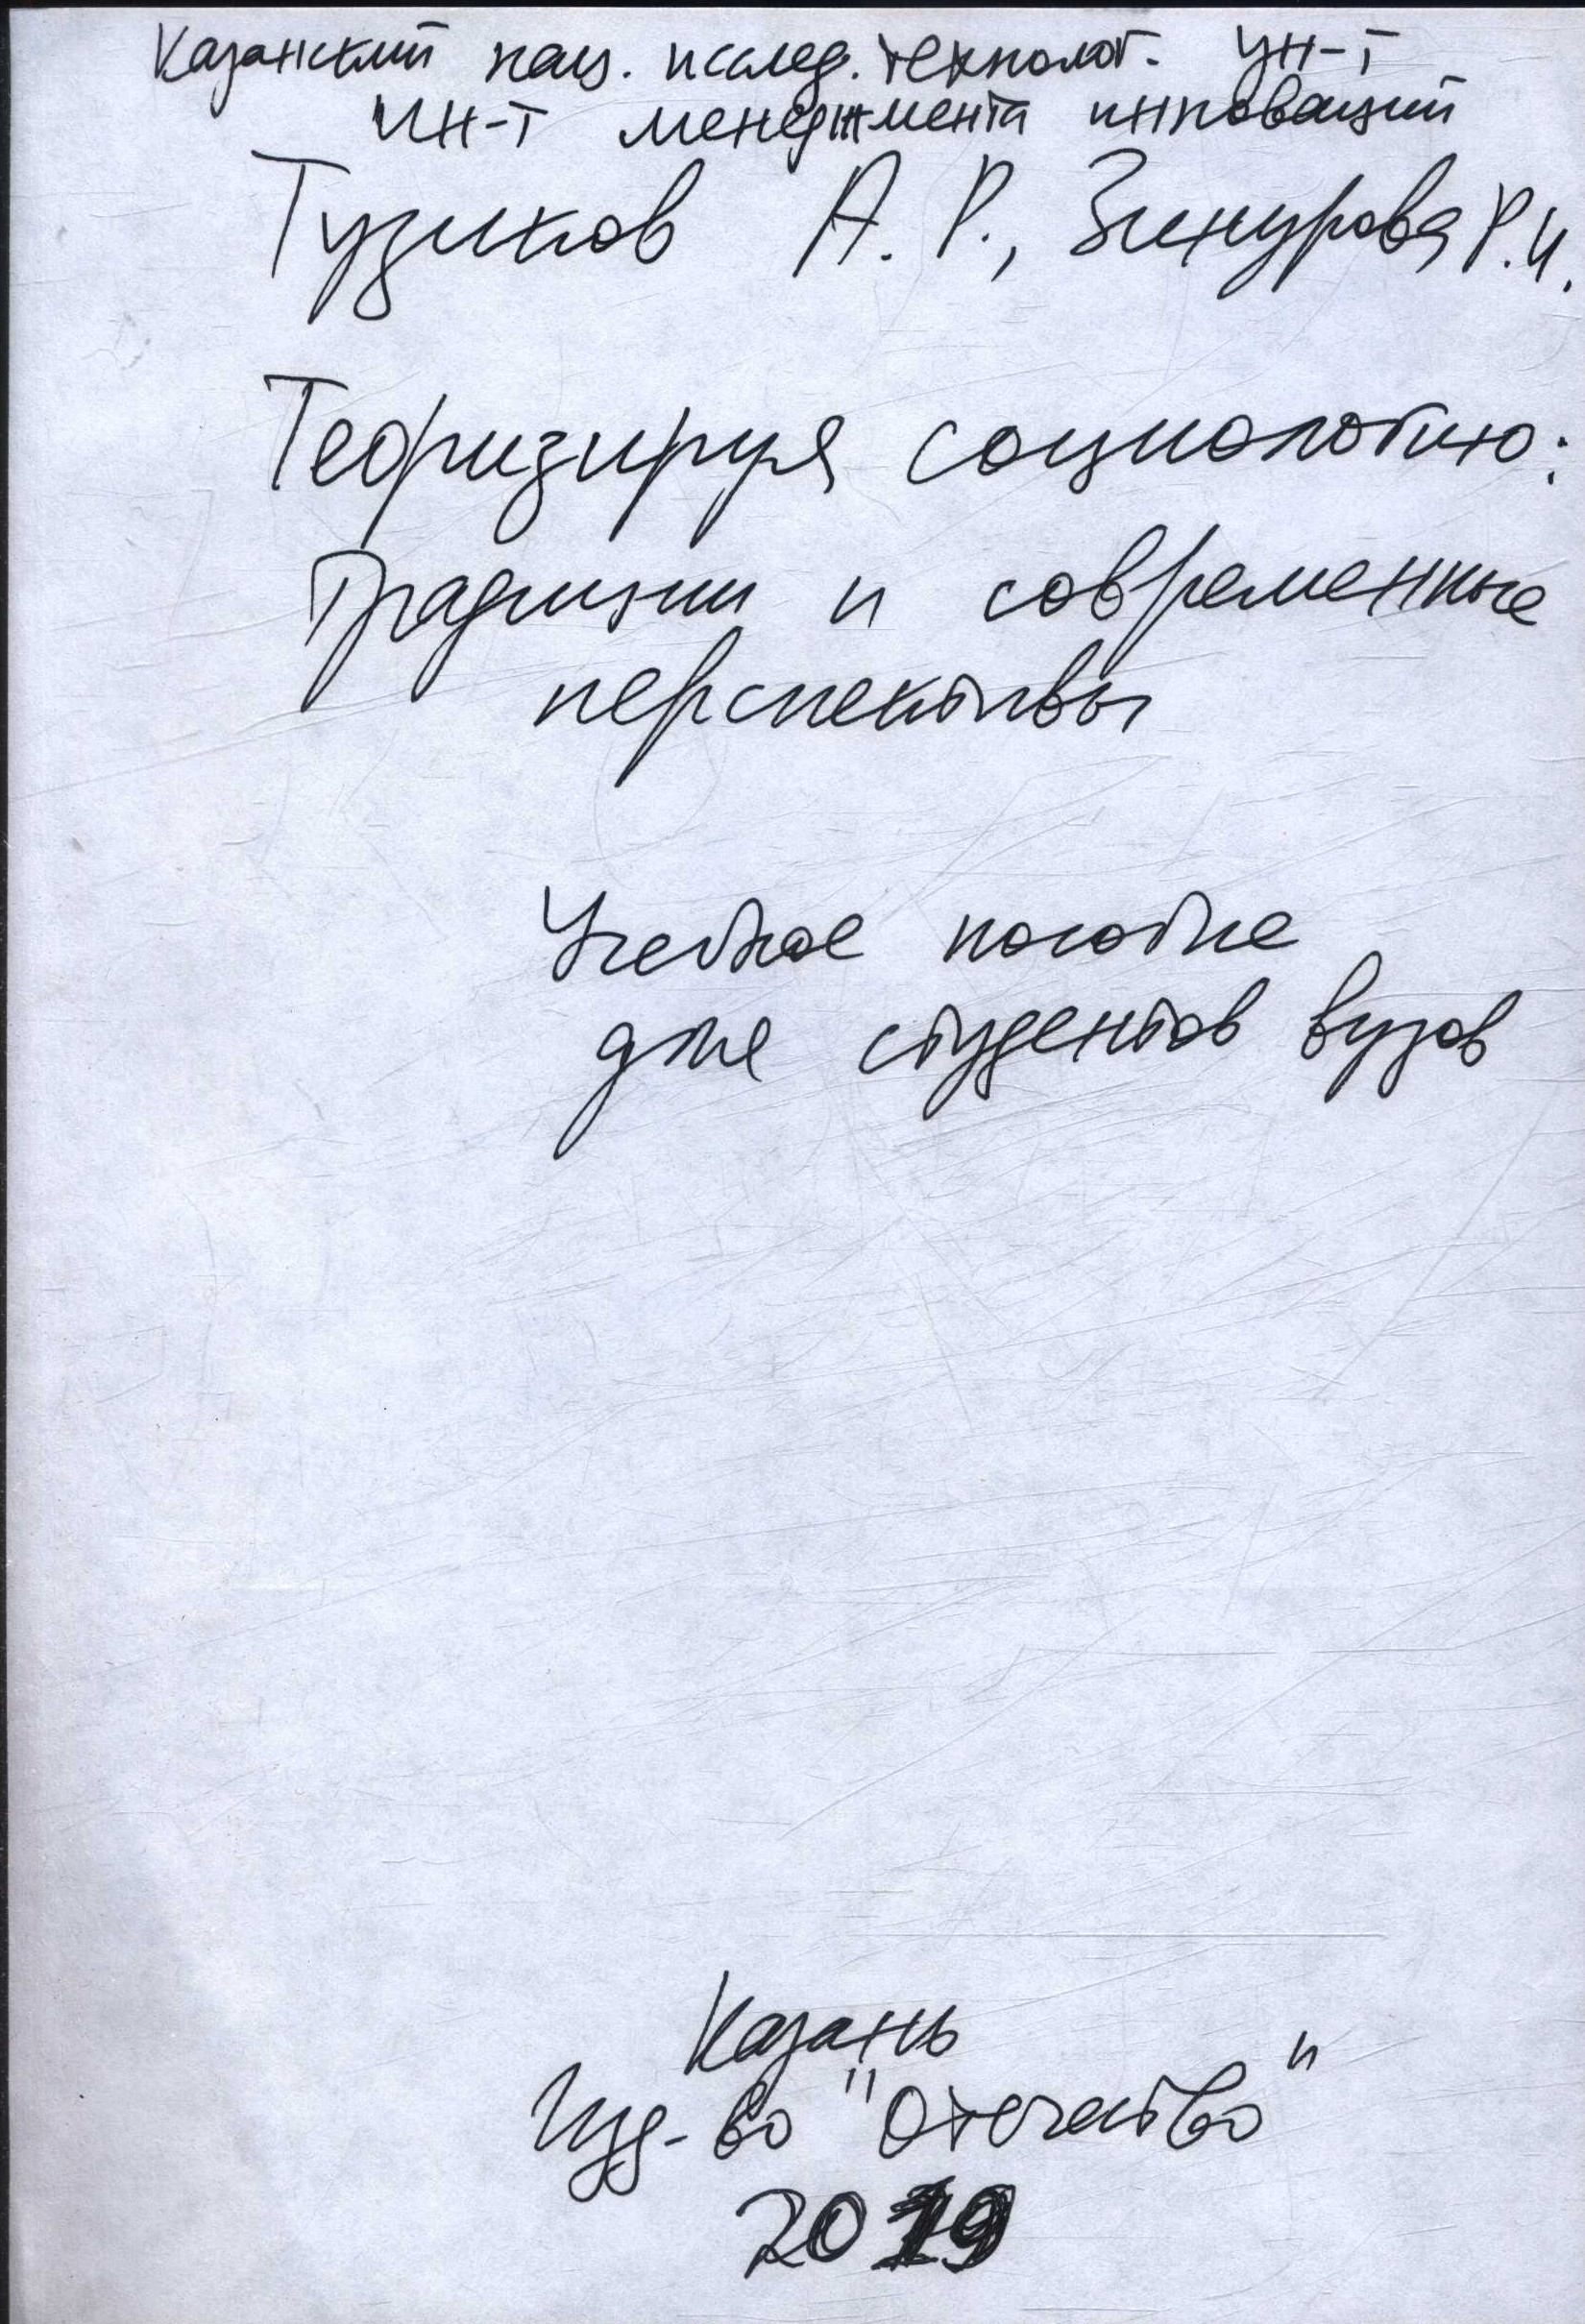 Казанский нац. исслед. технолог. ун-т
Ин-т менеджмента инноваций
Тузиков А. Р., Зинурова Р.И.
Теоризируя социологию:
Традиции и современные
перспективы
Учебное пособие
для студентов вузов
Казань
Изд-во "Отечество"
2019